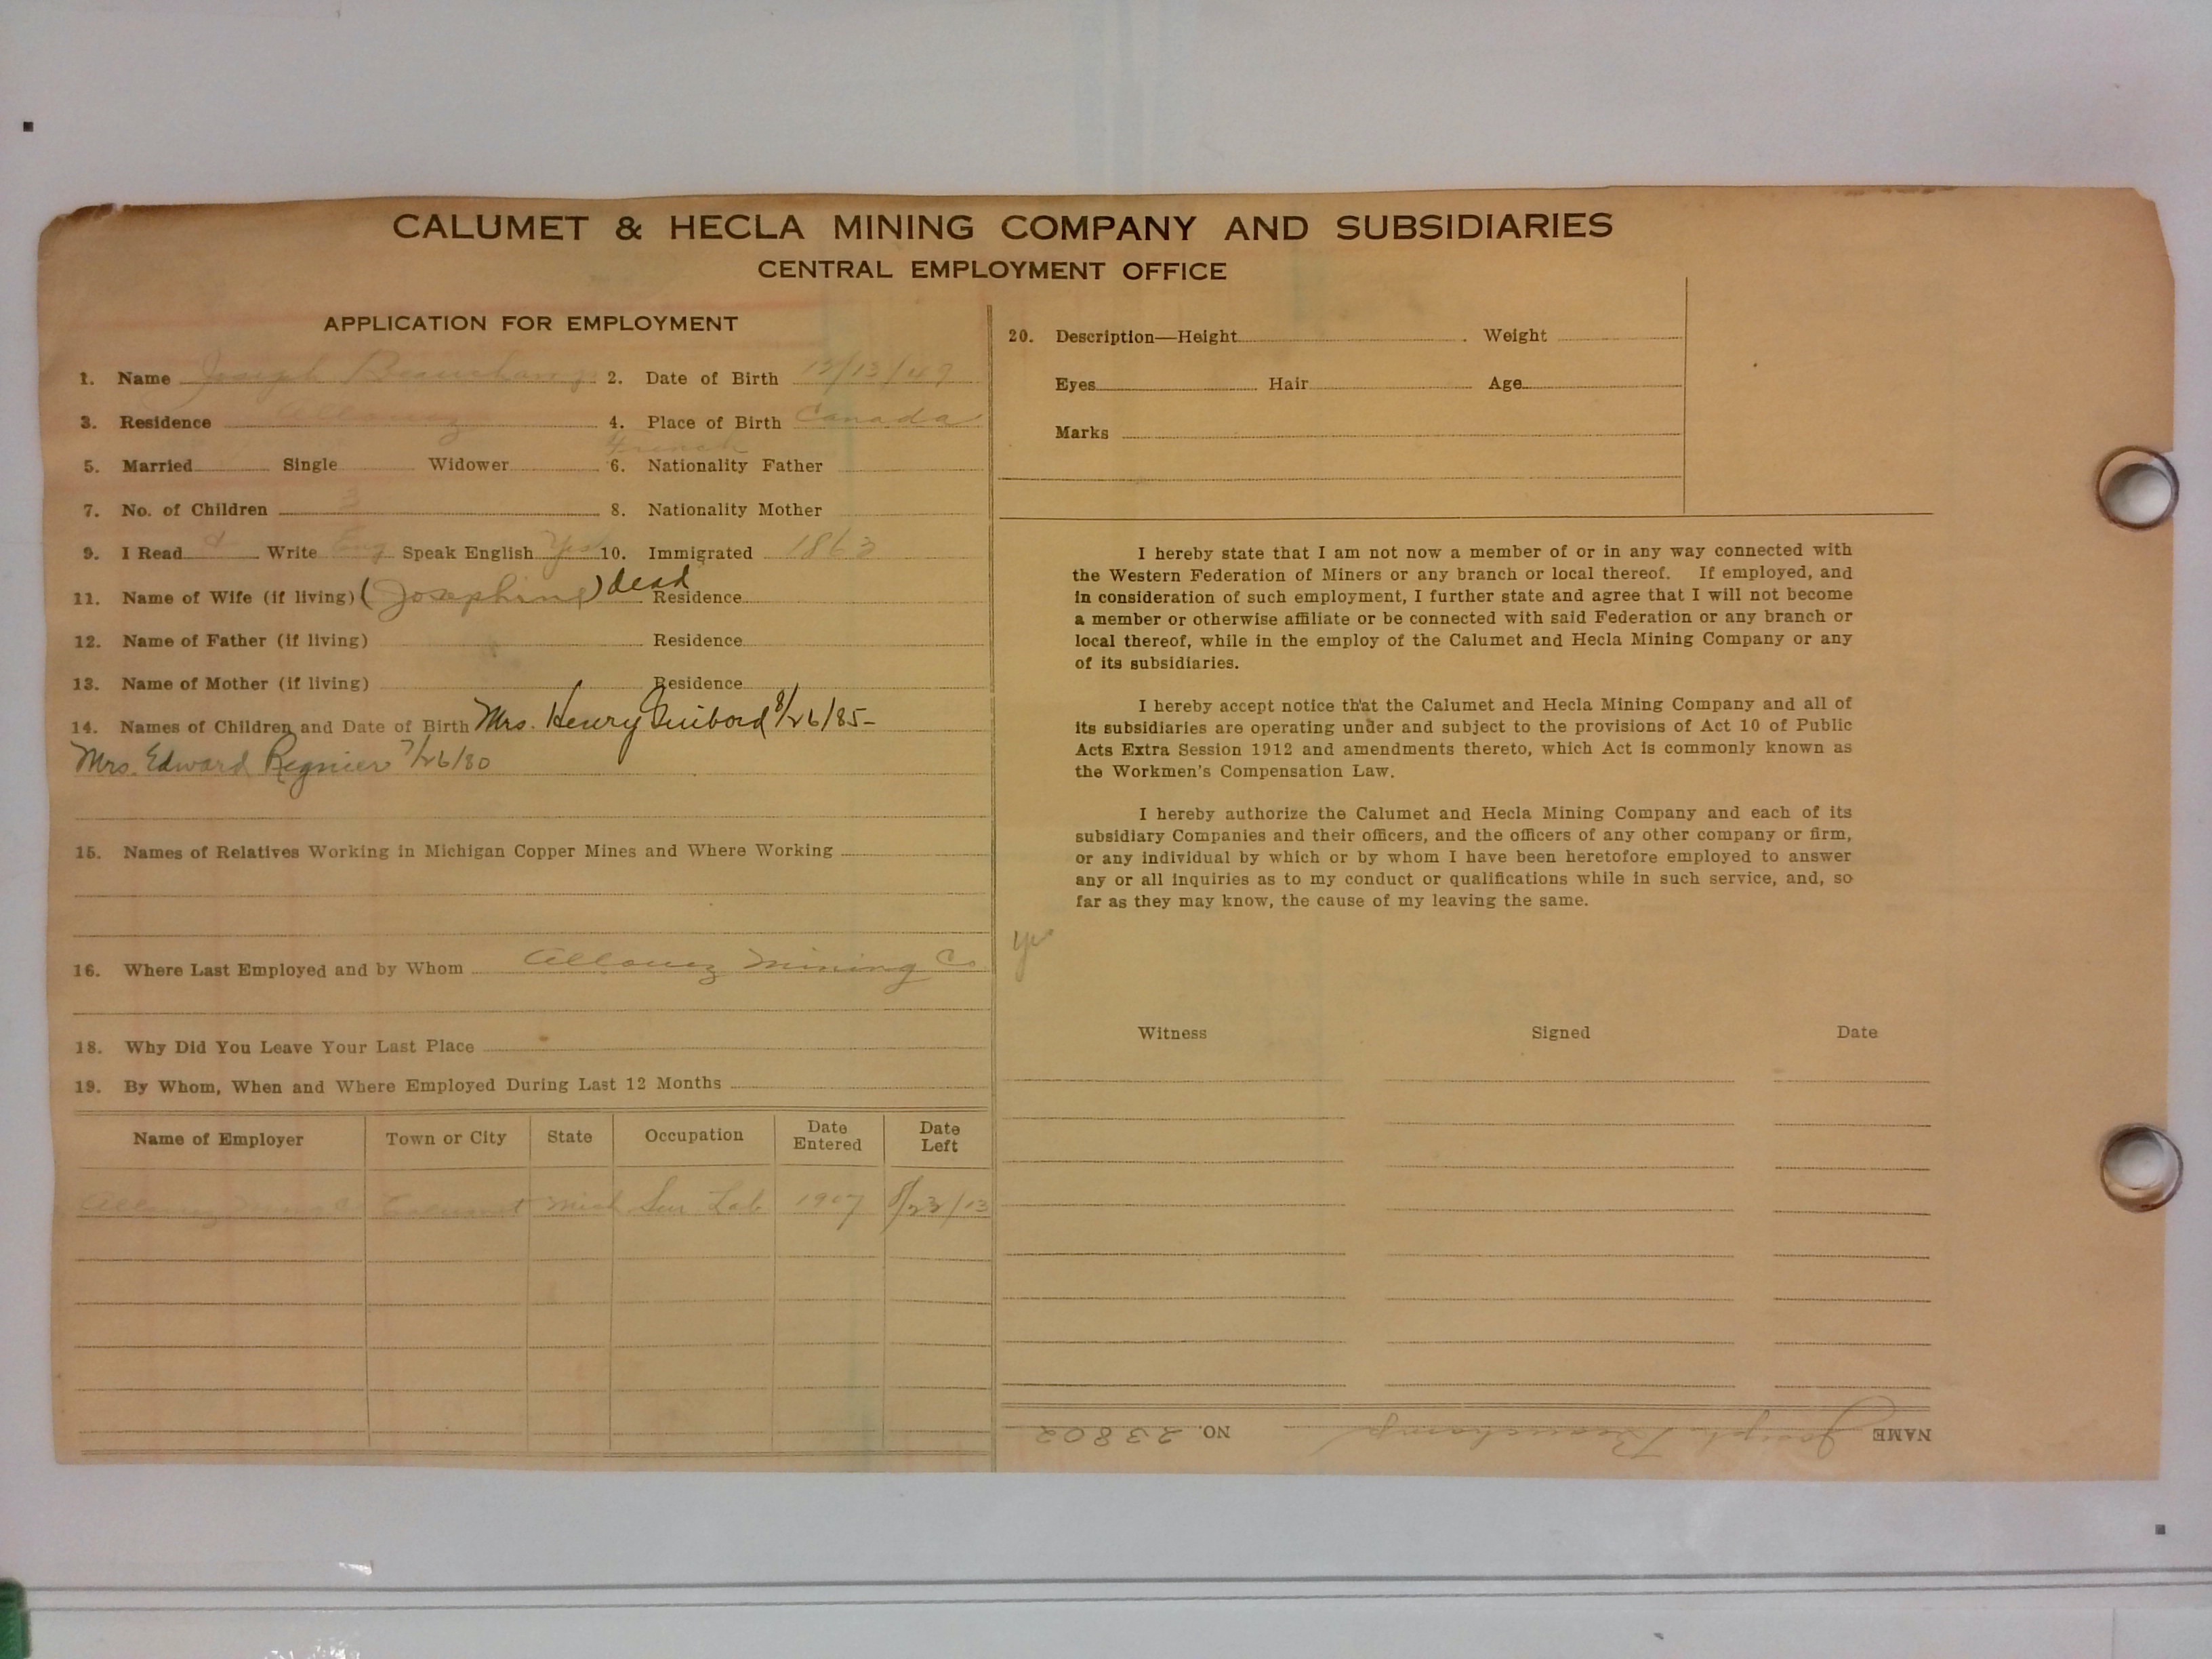 CALUMET & HECLA MINING COMPANY AND SUBSIDIARIES
CENTRAL EMPLOYMENT OFFICE
APPLICATION FOR EMPLOYMENT
1. Name Joseph Beauchamp 2. Date of Birth 12/13/47
3. Residence Allouez 4. Place of Birth Canada
French
5. Married Single Widower 6. Nationality Father
7. No. of Children 3 8. Nationality Mother
9. I Read & Write Eng Speak English Yes 10. Immigrated 1863
11. Name of Wife (if living) (Josephine) dead Residence
12. Name of Father (if living) Residence
13. Name of Mother (if living) Residence
14. Names of Children and Date of Birth Mrs. Henry Guibord 8/26/85-
Mrs. Edward Regnier 7/26/80
15. Names of Relatives Working in Michigan Copper Mines and Where Working
16. Where Last Employed and by Whom Allouez Mining Co
18. Why Did You Leave Your Last Place
19. By Whom, When and Where Employed During Last 12 Months
Name of Employer Town or City State Occupation Date Entered Date Left
Allouez Mining Co Calumet Mich Sur Lab 1907 8/23/13
20. Description—Height Weight
Eyes Hair Age
Marks
I hereby state that I am not now a member of or in any way connected with
the Western Federation of Miners or any branch or local thereof. If employed, and
in consideration of such employment, I further state and agree that I will not become
a member or otherwise affiliate or be connected with said Federation or any branch or
local thereof, while in the employ of the Calumet and Hecla Mining Company or any
of its subsidiaries.
I hereby accept notice that the Calumet and Hecla Mining Company and all of
its subsidiaries are operating under and subject to the provisions of Act 10 of Public
Acts Extra Session 1912 and amendments thereto, which Act is commonly known as
the Workmen's Compensation Law.
I hereby authorize the Calumet and Hecla Mining Company and each of its
subsidiary Companies and their officers, and the officers of any other company or firm,
or any individual by which or by whom I have been heretofore employed to answer
any or all inquiries as to my conduct or qualifications while in such service, and, so
far as they may know, the cause of my leaving the same.
yes
Witness Signed Date
NAME Joseph Beauchamp NO. 23802